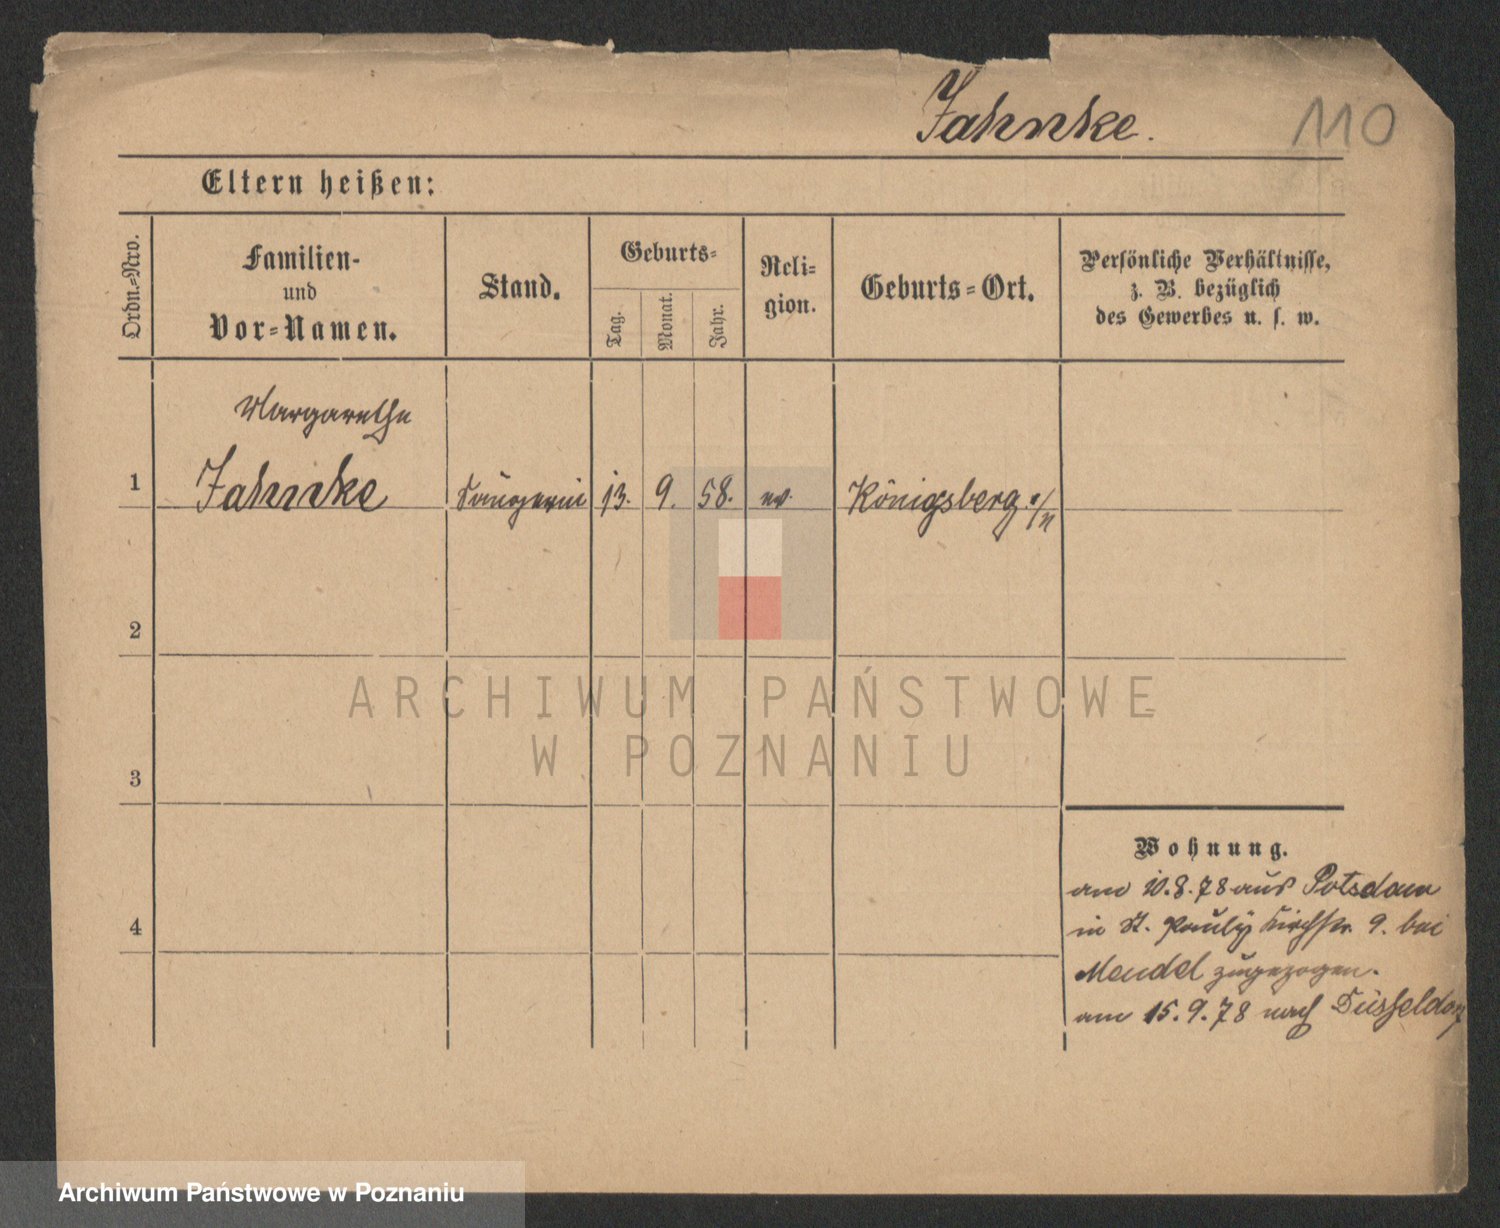 Jahnke. 110
Eltern heißen:
Ordn.-Nro.
Familien-
und
Vor-Namen.
Stand.
Geburts-
Tag.
Monat.
Jahr.
Reli-
gion.
Geburts-Ort.
Persönliche Verhältnisse,
z. B. bezüglich
des Gewerbes u. s. w.
Margarethe
1 Jahnke Sängerin 13. 9. 58. ev. Königsberg
2
ARCHIWUM PAŃSTWOWE
W POZNANIU
3
Wohnung.
am 10.8.78 aus Potsdam
4
in St. Pauly Kirchstr. 9. bei
Mendel zugezogen.
am 15.9.78 nach Düsseldorf
Archiwum Państwowe w Poznaniu